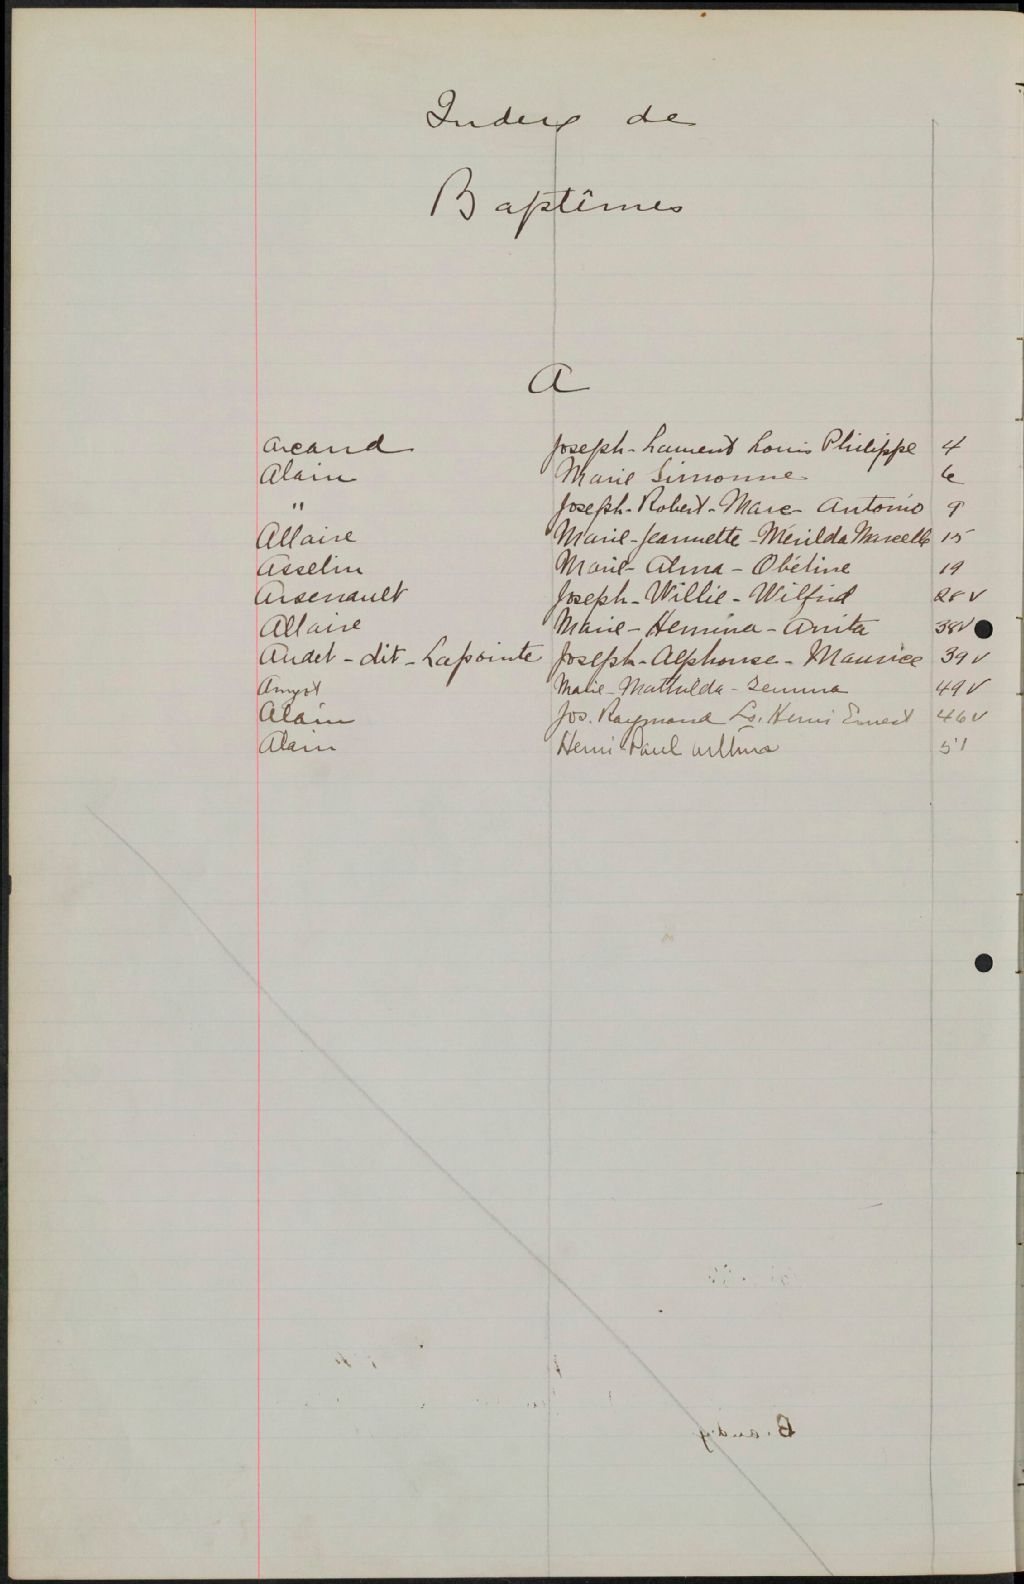 Index de
Baptêmes
A
Arcand Joseph-Laurent Louis Philippe 4
Alain Marie Simonne 6
" Joseph-Robert-Marc Antonio 9
Allaire Marie-Jeannette-Mérilda Marcelle 15
Asselin Marie-Alma-Obéline 19
Arsenault Joseph-Willie-Wilfrid 28v
Allaire Marie-Hermina-Anita 38v
Audet-dit-Lapointe Joseph-Alphonse-Maurice 39v
Amyot Marie-Mathilda-Gemma 49v
Alain Jos. Raymond Ls. Henri Ernest 46v
Alain Henri Paul Arthur 51